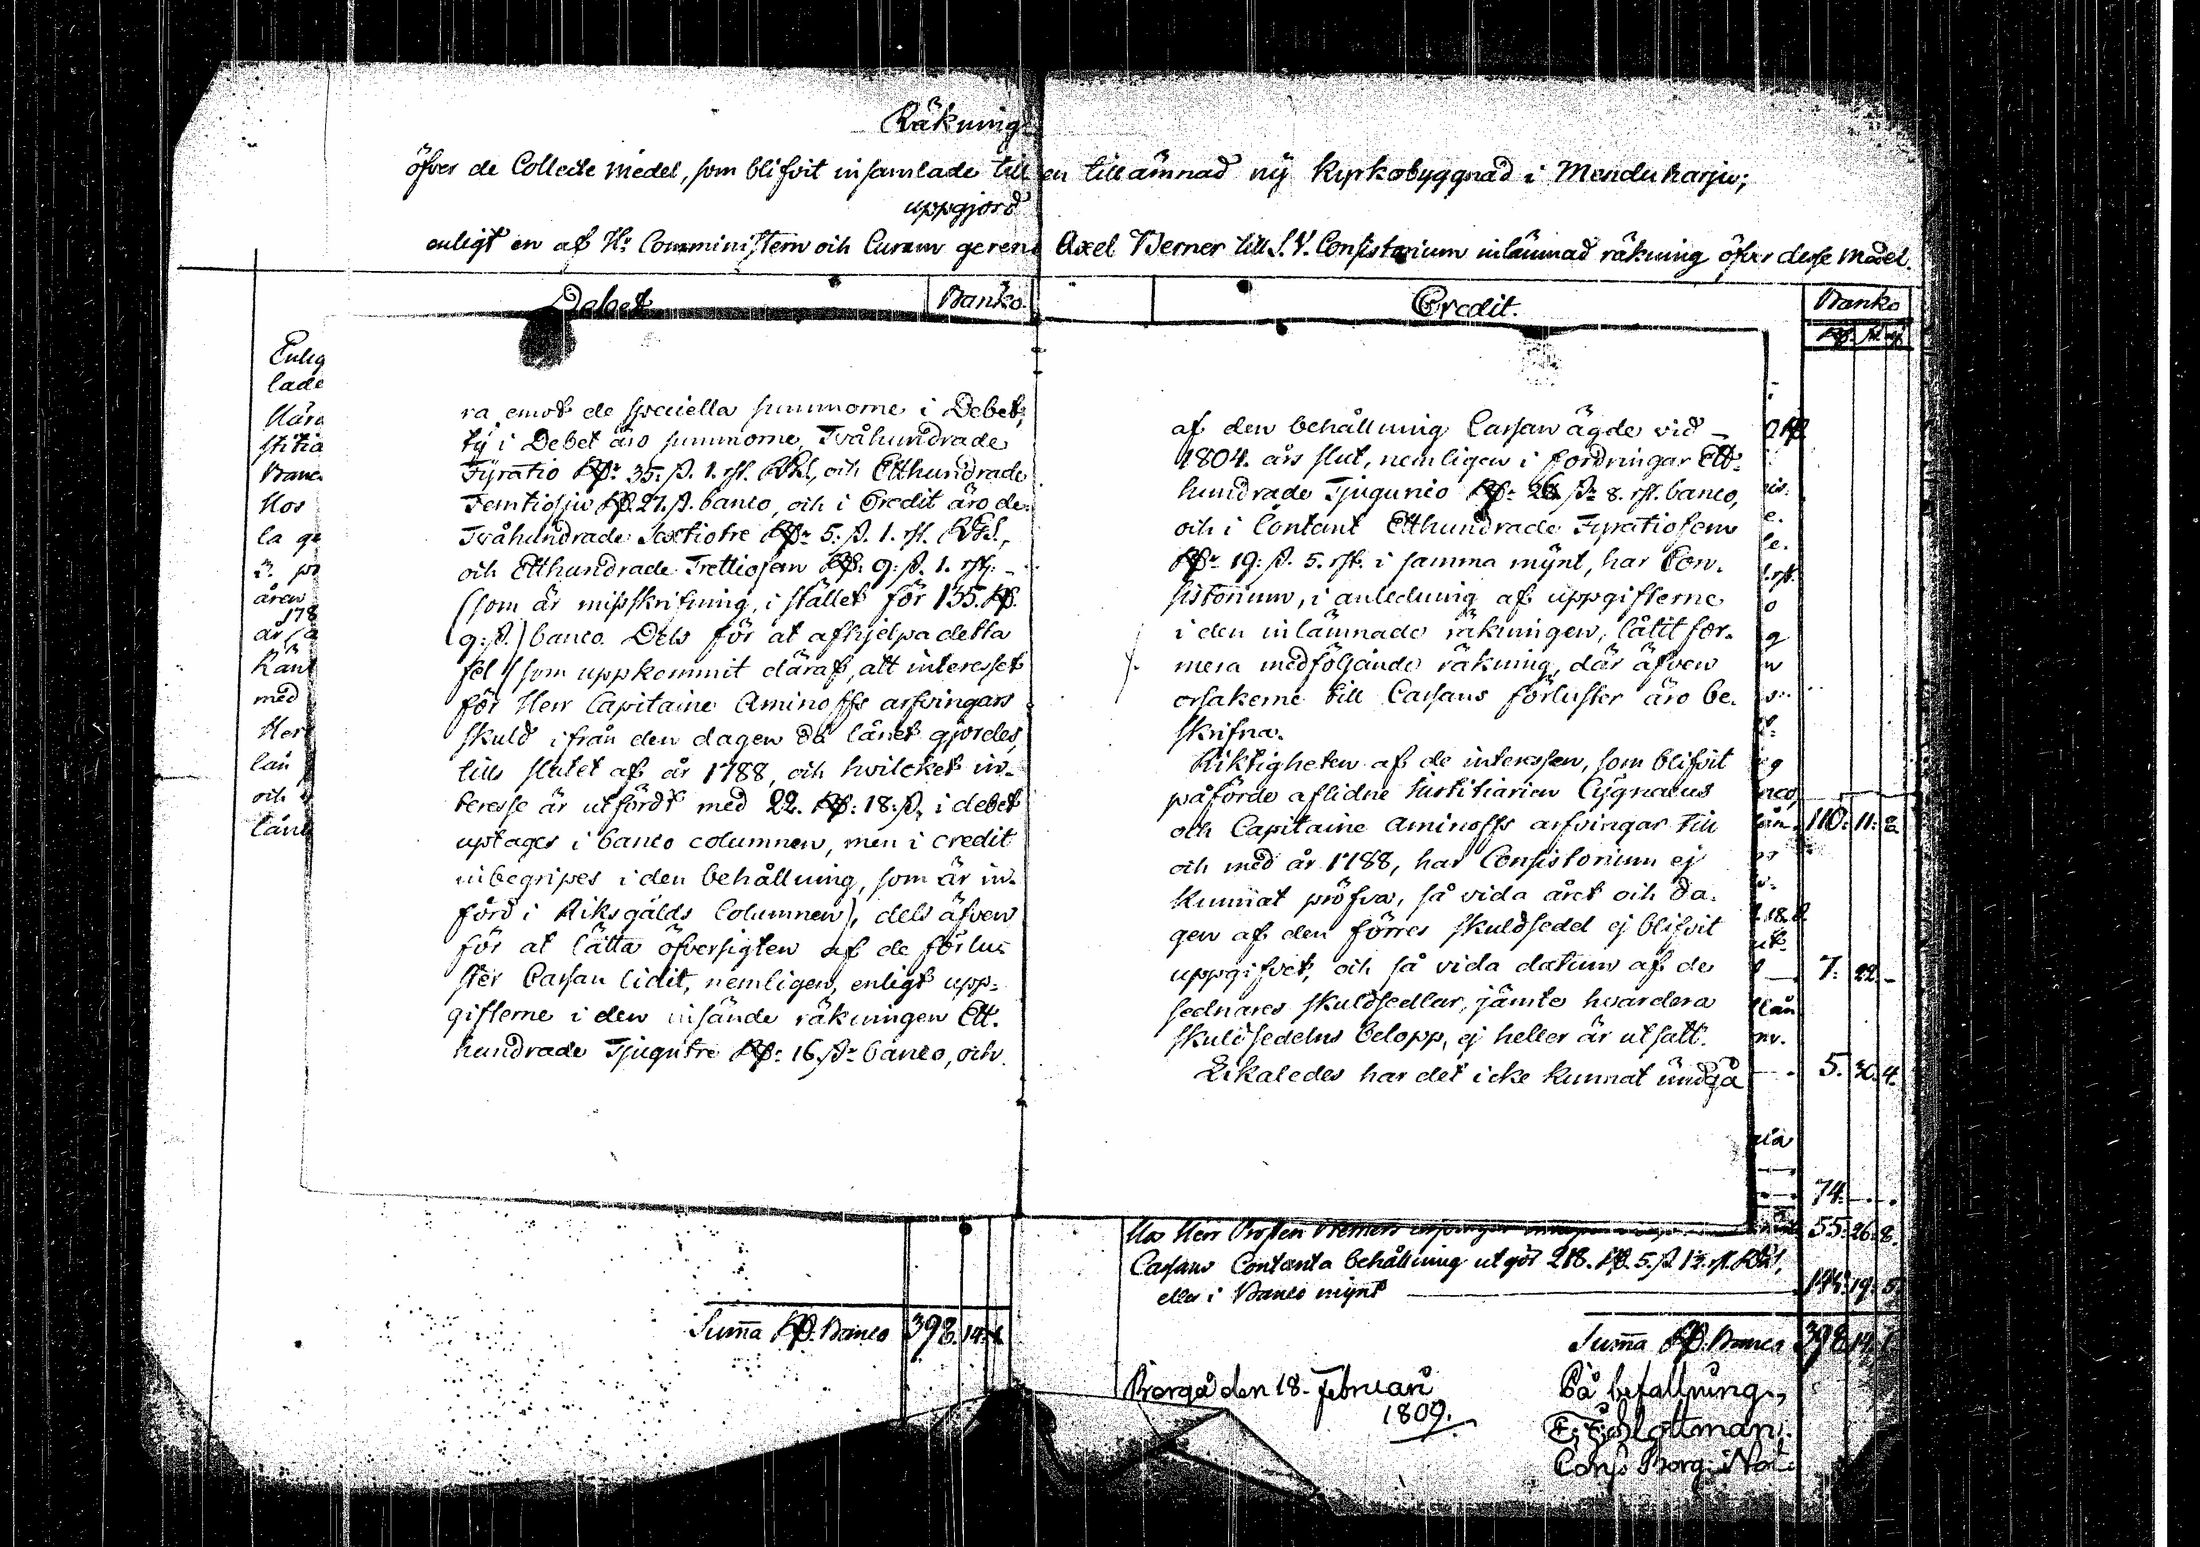 Räkning
öfver de Collecte medel, som blifvit insamlade till en tillämnad ny kyrkobyggnad i Menduharju;
uppgjord
enligt en af Hr Comministern och Curam gerens Axel Berner till S.V. Consistorium inlämnad räkning öfver desse medel.
Debet
Banko
Credit.
Banko
Enlig
lade
Hära
stitia
Banc
Hos
la ge
åren
178
Ränt
med
Herr
lån
och
låne
ra emot de speciella summorne i Debet,
ty i Debet äro summorne, Tvåhundrade
Fyratio Rdr 35. ß. 1. rst. RGS., och Etthundrade
Femtiosju Rd. 27. ß. banco, och i Credit äro de
Tvåhundrade Sextiotre Rdr 5. ß. 1. rst. RGS.,
och Etthundrade Trettiofem Rd. 9. ß. 1. rst. -
(som är misskrifning, i stället för 135. Rd.
9. ß.) banco. Dels för at afhjelpa detta
fel (som uppkommit däraf, att interesset
för Herr Capitaine Aminoffs arfvingars
skuld ifrån den dagen då lånet gjordes,
till slutet af år 1788, och hvilcket in-
teresse är utfördt med 22. Rd: 18: ß, i debet
uptages i banco columnen, men i credit
inbegripes i den behållning, som är in-
förd i Riksgälds Columnen), dels äfven
för at lätta öfversigten af de förlu-
ster Cassan lidit, nemligen, enligt upp-
gifterne i den insände räkningen Ett-
hundrade Tjugutre Rd: 16. ß: banco, och
af den behållning Cassan ägde vid -
1804. års slut, nemligen i fordringar Ett-
hundrade Tjugunio Rd: 26 ß: 8. rst. banco,
och i Contant Etthundrade Fyratiofem
Rdr 19: ß. 5. rst. i samma mynt, har Con-
sistorium, i anledning af uppgifterne
i den inlämnade räkningen, låtit for-
mera medföljande räkning, där äfven
orsakerne till Cassans förluster äro be-
skrifna.
Riktigheten af de interessen, som blifvit
påförde aflidne Justitiarien Cygnaeus
och Capitaine Aminoffs arfvingar till
och med år 1788, har Consistorium ej
kunnat pröfva, så vida året och da-
gen af den förres skuldsedel ej blifvit
uppgifvet, och så vida datum af de
sednares skuldsedlar, jämte hvardera
skuldsedelns belopp, ej heller är utsatt.
Likaledes har det icke kunnat undgå
110. 11. 2.
7. 22. -
5. 30. 4.
74. - -
Hos Herr Prosten 55. 26. 8.
Cassans Contanta behållning utgör 218. Rd. 5. ß 13. rst. RGS.,
eller i Banco mynt 145. 19. 5.
Summa Rd. Banco 398. 14. 1.
Summa Rd. Banco 398. 14. 1.
Borgå den 18. Februari
1809.
På befallning,
Cons. Borg. Not.